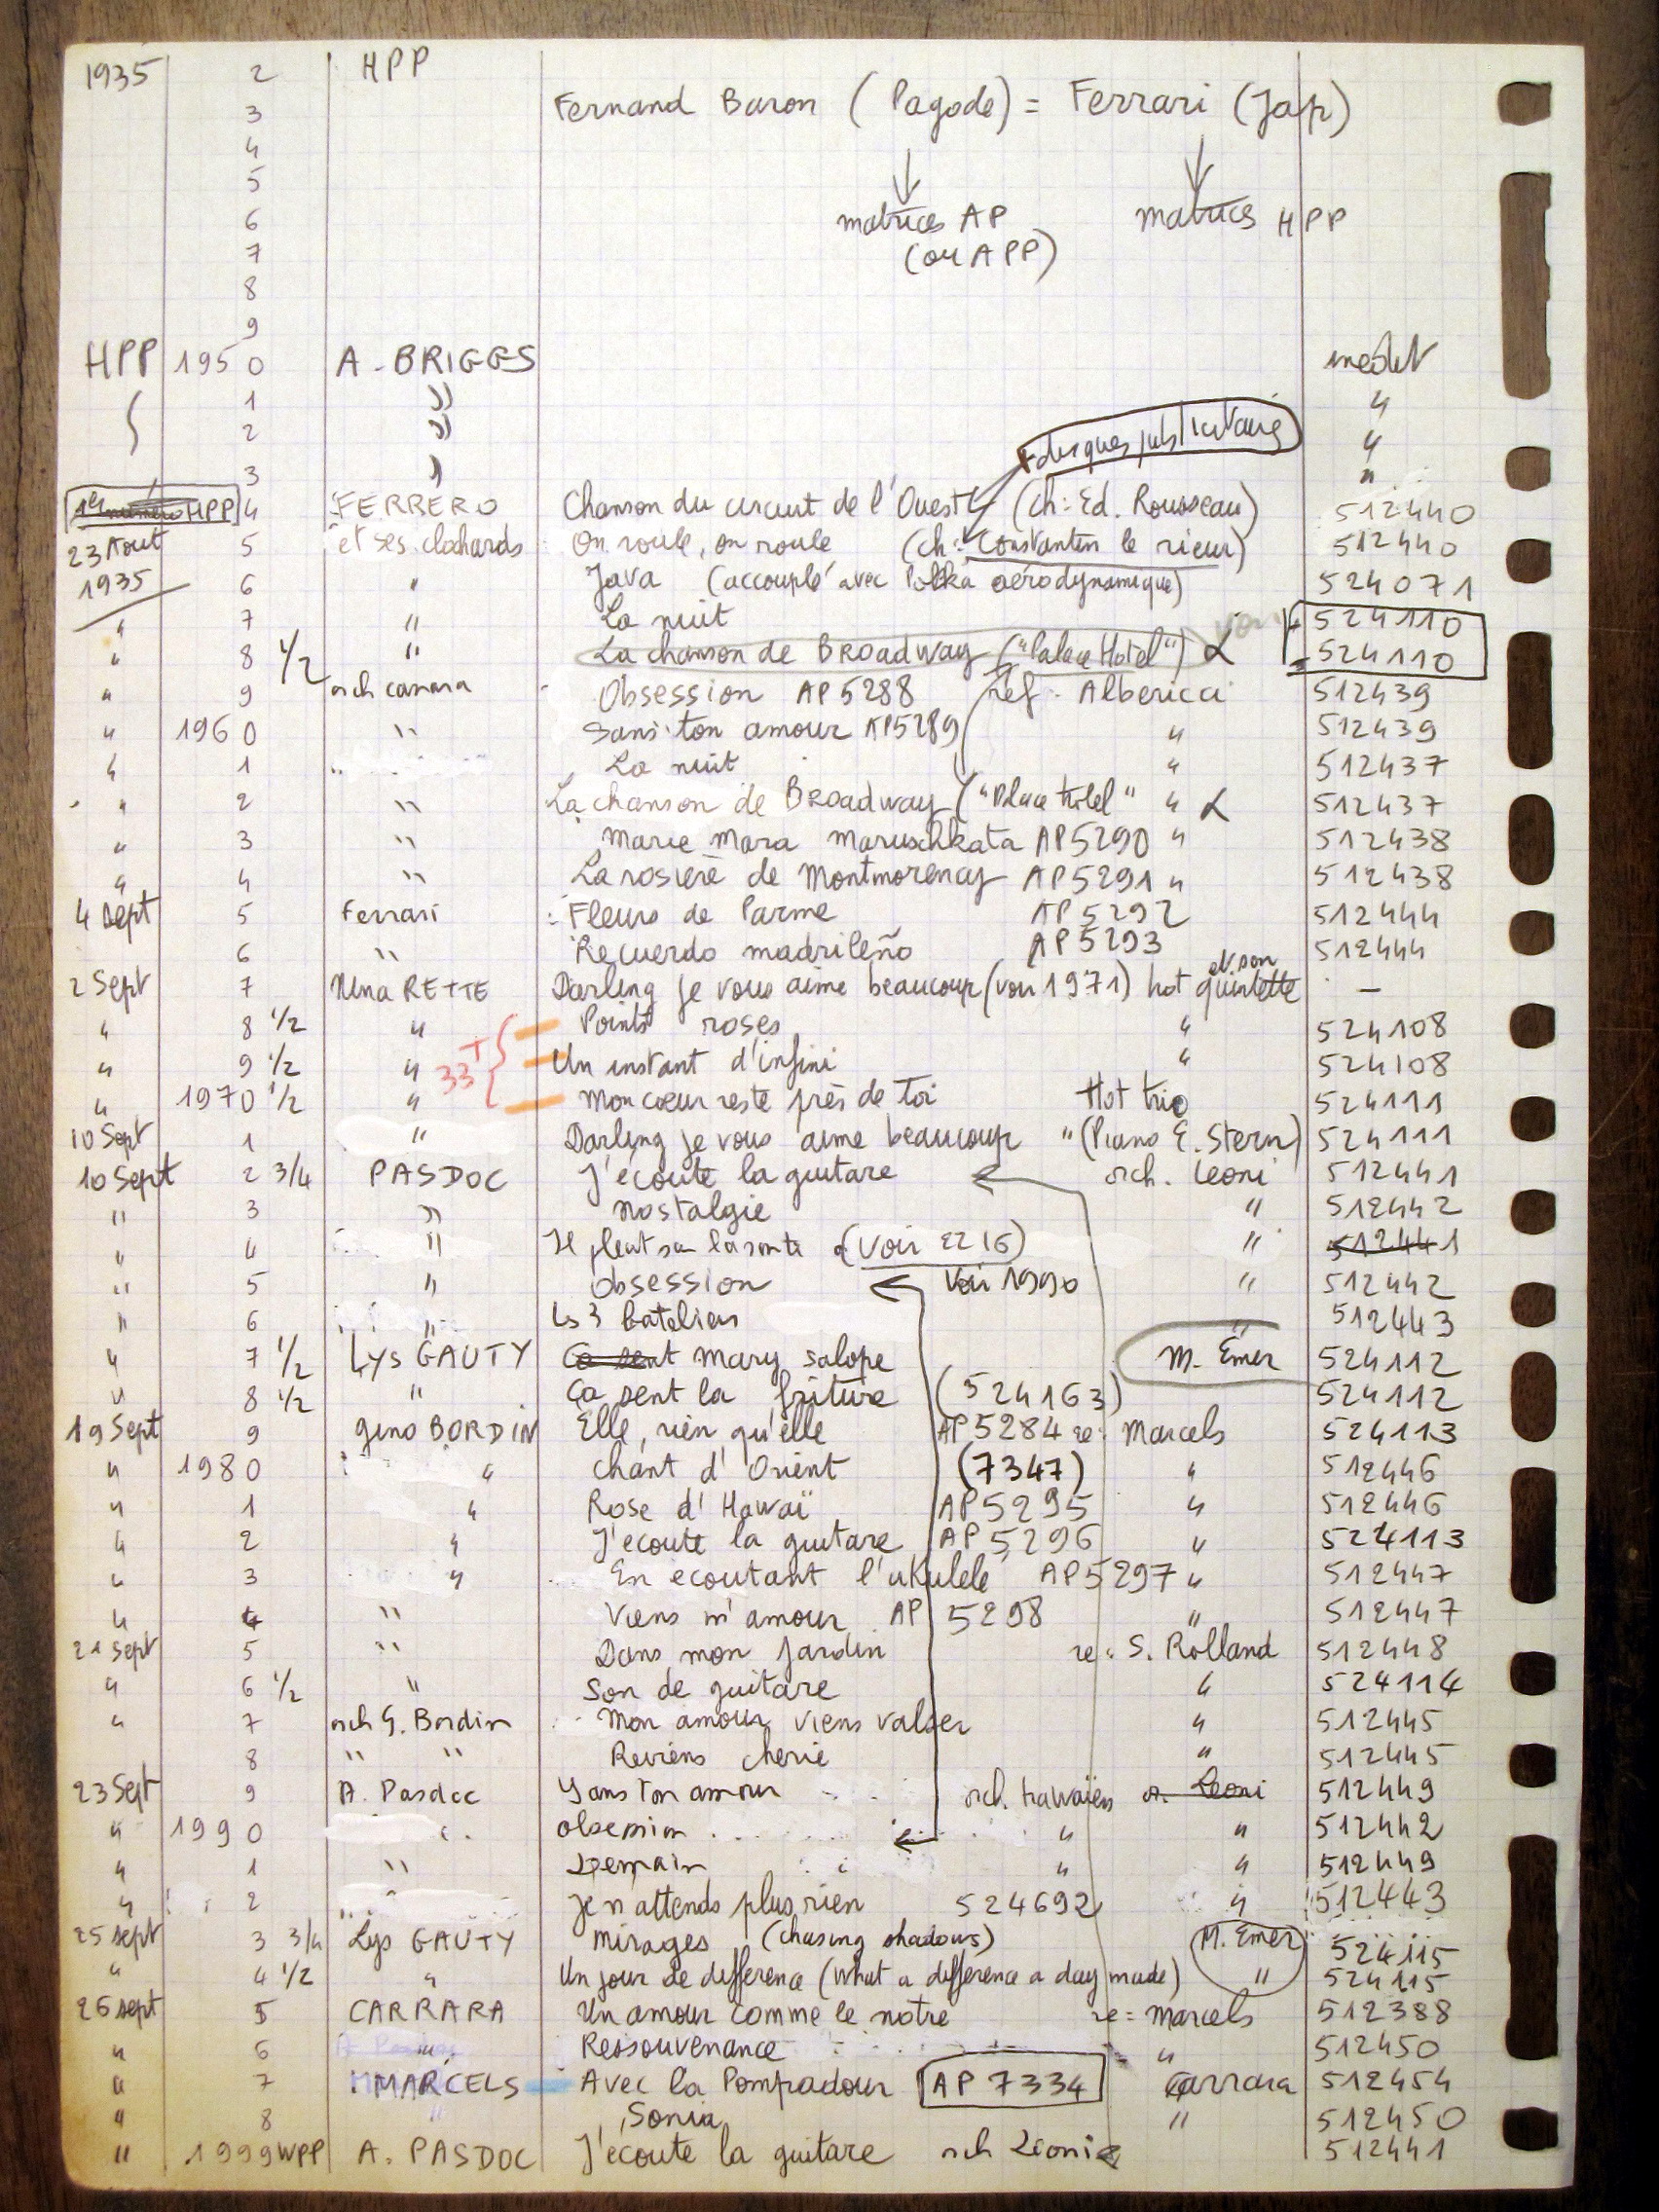 1935 2 HPP
3 Fernand Baron (Pagode) = Ferrari (Jap)
4
5
6 matrices AP matrices HPP
7 (ou APP)
8
9
HPP 1950 A. BRIGGS inédit
1 " "
2 " "
+ disques publicitaires
3 " "
1er numéro HPP 4 FERRERO Chanson du circuit de l'Ouest (ch: Ed. Rousseau) 512440
23 Aout 5 et ses clochards On roule, on roule (ch: Constantin le rieur) 512440
1935 6 " Java (accouplé avec Polka aérodynamique) 524071
" 7 " La nuit voir 524110
" 8 1/2 " La chanson de Broadway ("Palace Hotel") α 524110
" 9 orch carrara Obsession AP5288 ref. Albericci 512439
" 1960 " Sans ton amour AP5289 " 512439
" 1 " La nuit " 512437
" 2 " La chanson de Broadway ("Palace Hotel" " α 512437
" 3 " Marie Mara Maruschkata AP5290 " 512438
" 4 " La rosière de Montmorency AP5291 " 512438
4 Sept 5 Ferrari Fleurs de Parme AP5292 512444
6 " Recuerdo madrileño AP5293 512444
2 Sept 7 Nina RETTE Darling je vous aime beaucoup (voir 1971) hot et son quintette —
" 8 1/2 " Points roses " 524108
" 9 1/2 " 33T Un instant d'infini " 524108
" 1970 1/2 " Mon coeur reste près de toi Hot trio 524111
10 Sept 1 " Darling je vous aime beaucoup " (Piano E. Stern) 524111
10 Sept 2 3/4 PASDOC J'écoute la guitare orch. Leoni 512441
" 3 " Nostalgie " 512442
" 4 " Il pleut sur la route (voir 2216) " 512441
" 5 " Obsession voir 1990 " 512442
" 6 " Ls 3 bateliers " 512443
" 7 1/2 Lys GAUTY Ça sent Mary salope M. Emer 524112
" 8 1/2 " Ça sent la friture (524163) 524112
19 Sept 9 gino BORDIN Elle, rien qu'elle AP5284 re: Marcels 524113
" 1980 " Chant d'Orient (7347) " 512446
" 1 " Rose d'Hawaï AP5295 " 512446
" 2 " J'ecoute la guitare AP5296 " 524113
" 3 " En écoutant l'ukulele AP5297 " 512447
" 4 " Viens m'amour AP 5298 " 512447
21 Sept 5 " Dans mon jardin re: S. Rolland 512448
" 6 1/2 " Son de guitare " 524114
" 7 orch G. Bordin Mon amour viens valser " 512445
8 " " Reviens cherie " 512445
23 Sept 9 A. Pasdoc Sans ton amour orch. hawaïen o. Leoni 512449
" 1990 " Obsession " " 512442
" 1 " Demain " " 512449
" 2 " Je n'attends plus rien 524692 " 512443
25 sept 3 3/4 Lys GAUTY Mirages (chasing shadows) M. Emer 524115
" 4 1/2 " Un jour de différence (what a difference a day made) " 524115
26 sept 5 CARRARA Un amour comme le notre re= Marcels 512388
" 6 " Ressouvenance " 512450
" 7 MARCELS Avec la Pompadour AP 7334 Carrara 512454
" 8 " Sonia " 512450
" 1999WPP A. PASDOC J'écoute la guitare orch Léoni 512441